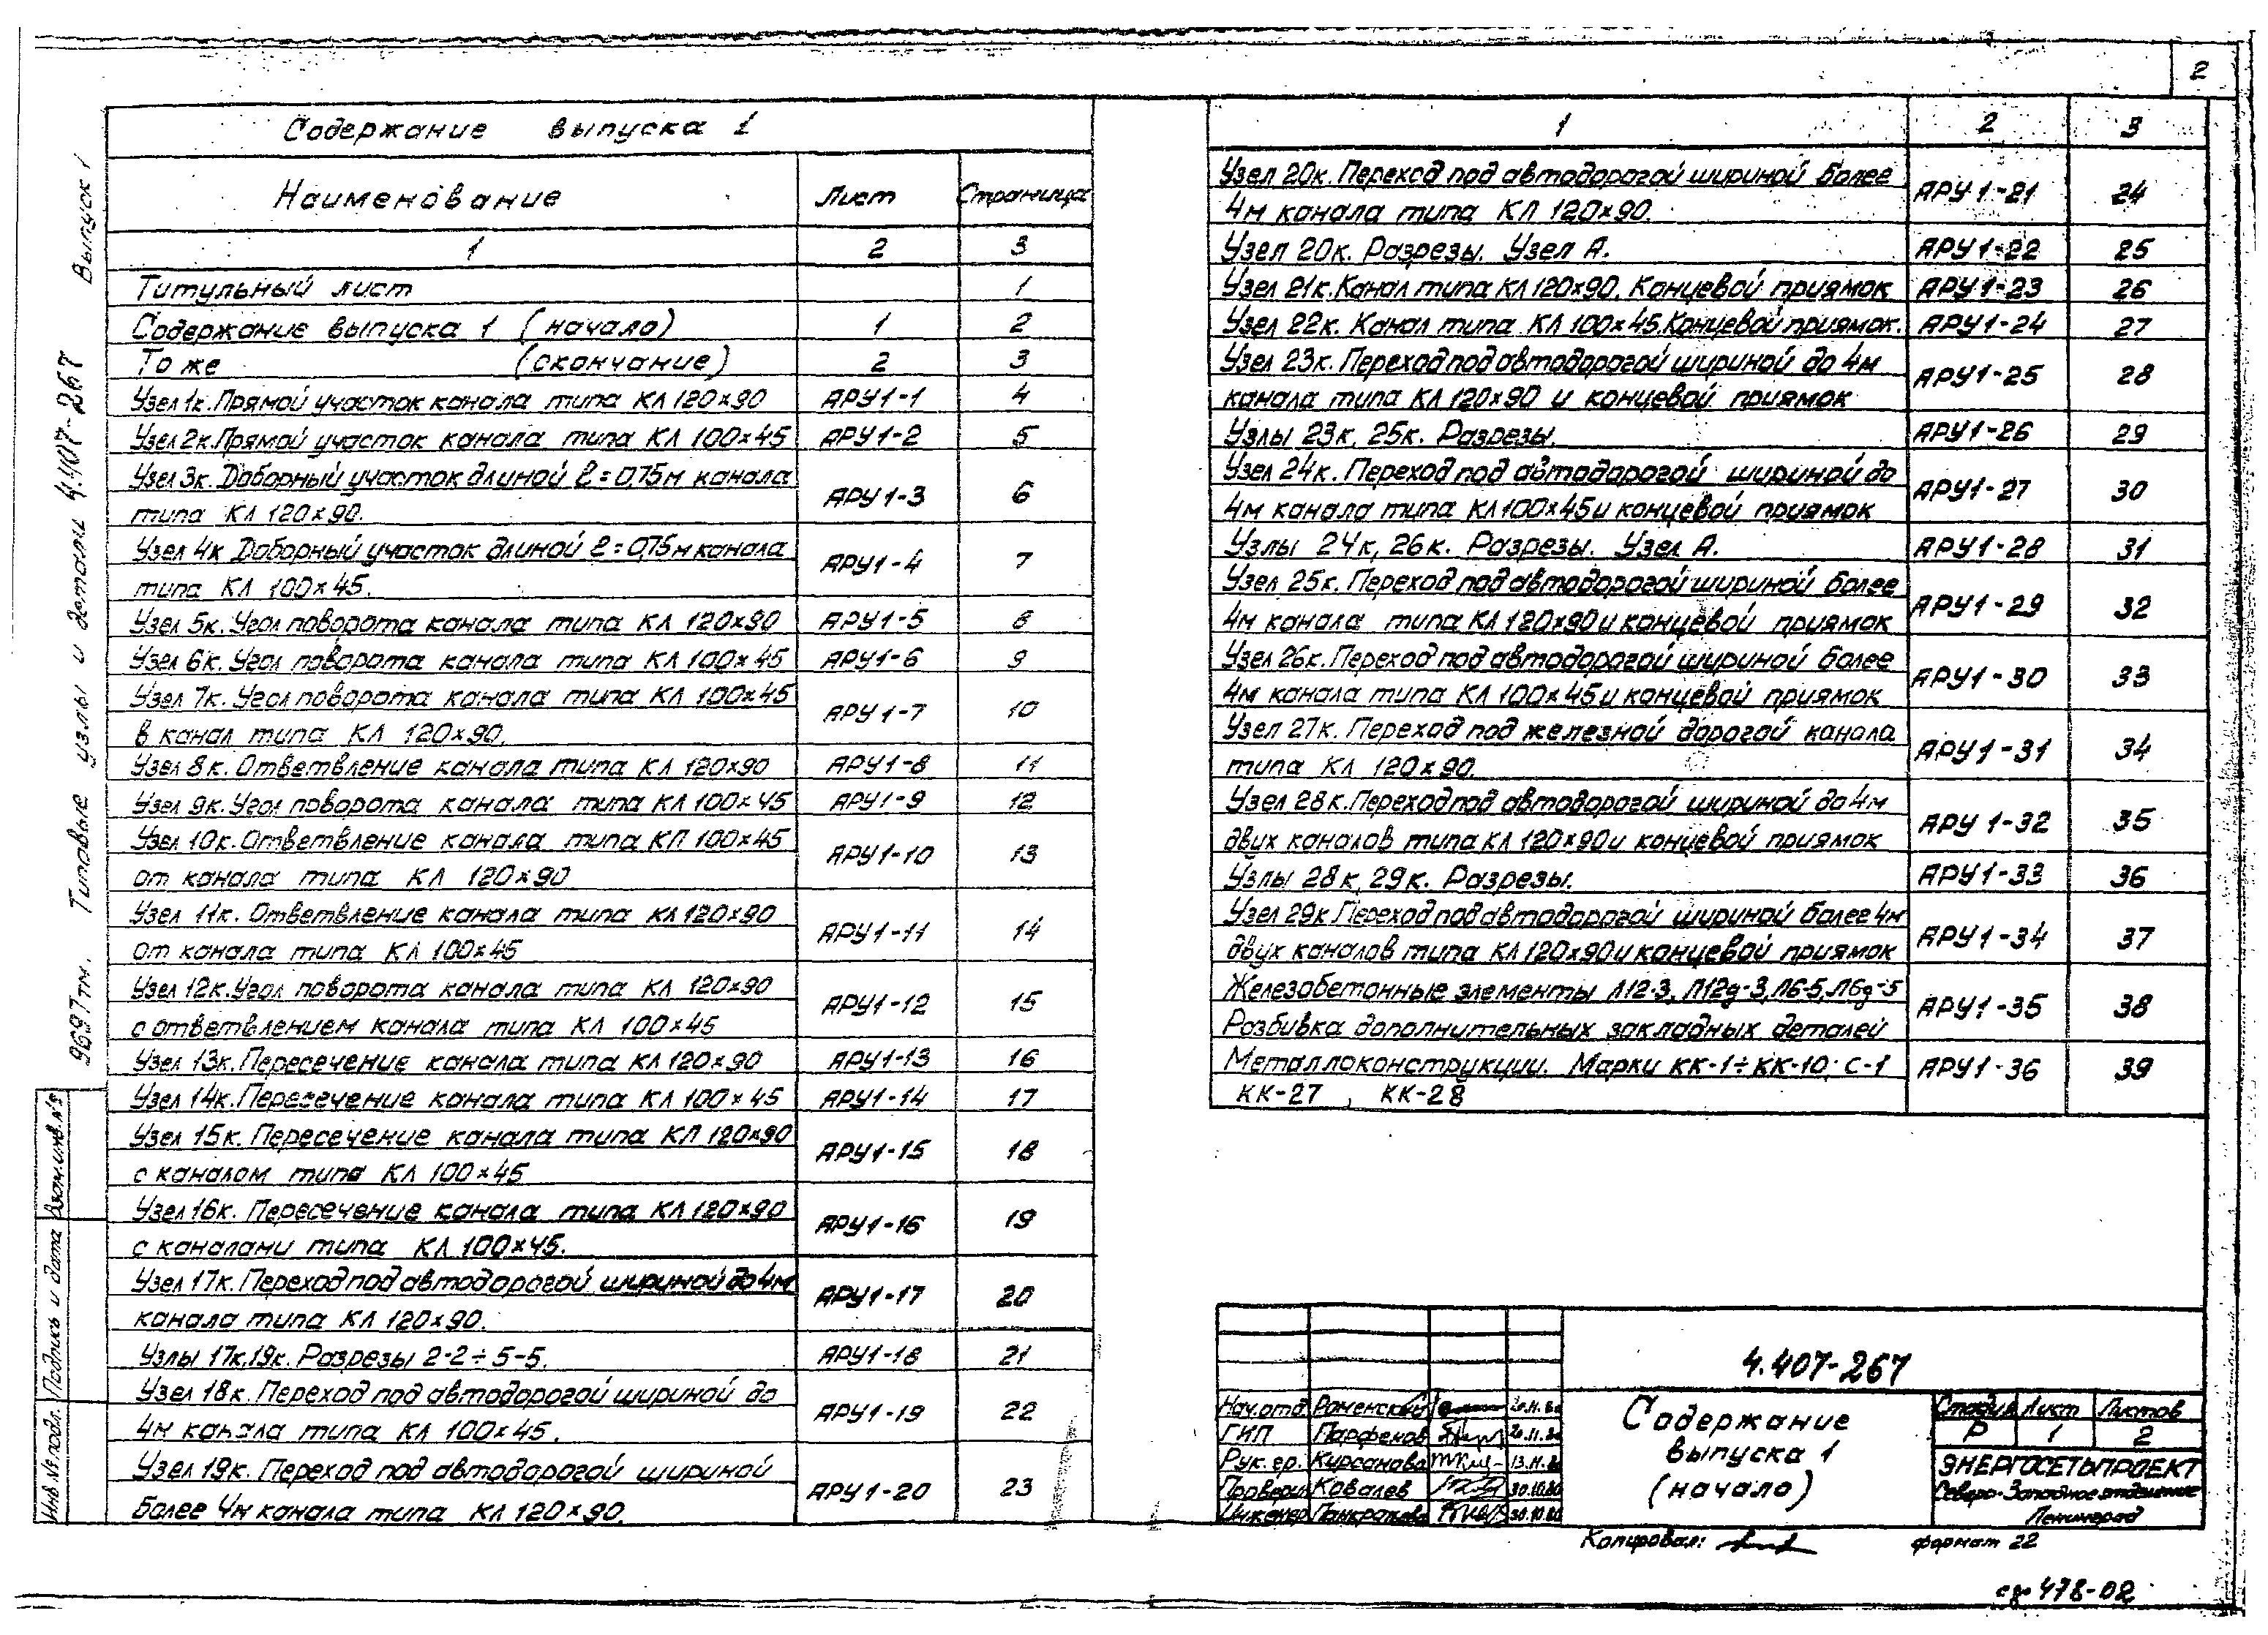 2
Содержание выпуска 1
Наименование Лист Страница
1 2 3
Титульный лист 1
Содержание выпуска 1 (начало) 1 2
То же (окончание) 2 3
Узел 1к. Прямой участок канала типа КЛ 120×90 АРУ1-1 4
Узел 2к. Прямой участок канала типа КЛ 100×45 АРУ1-2 5
Узел 3к. Доборный участок длиной ℓ=0,75м канала
типа КЛ 120×90. АРУ1-3 6
Узел 4к Доборный участок длиной ℓ=0,75м канала
типа КЛ 100×45. АРУ1-4 7
Узел 5к. Угол поворота канала типа КЛ 120×90 АРУ1-5 8
Узел 6к. Угол поворота канала типа КЛ 100×45 АРУ1-6 9
Узел 7к. Угол поворота канала типа КЛ 100×45
в канал типа КЛ 120×90. АРУ1-7 10
Узел 8к. Ответвление канала типа КЛ 120×90 АРУ1-8 11
Узел 9к. Угол поворота канала типа КЛ 100×45 АРУ1-9 12
Узел 10к. Ответвление канала типа КЛ 100×45
от канала типа КЛ 120×90 АРУ1-10 13
Узел 11к. Ответвление канала типа КЛ 120×90
от канала типа КЛ 100×45 АРУ1-11 14
Узел 12к. Угол поворота канала типа КЛ 120×90
с ответвлением канала типа КЛ 100×45 АРУ1-12 15
Узел 13к. Пересечение канала типа КЛ 120×90 АРУ1-13 16
Узел 14к. Пересечение канала типа КЛ 100×45 АРУ1-14 17
Узел 15к. Пересечение канала типа КЛ 120×90
с каналом типа КЛ 100×45 АРУ1-15 18
Узел 16к. Пересечение канала типа КЛ 120×90
с каналами типа КЛ 100×45. АРУ1-16 19
Узел 17к. Переход под автодорогой шириной до 4м
канала типа КЛ 120×90. АРУ1-17 20
Узлы 17к, 19к. Разрезы 2-2÷5-5. АРУ1-18 21
Узел 18к. Переход под автодорогой шириной до
4м канала типа КЛ 100×45. АРУ1-19 22
Узел 19к. Переход под автодорогой шириной
более 4м канала типа КЛ 120×90. АРУ1-20 23
1 2 3
Узел 20к. Переход под автодорогой шириной более
4м канала типа КЛ 120×90. АРУ1-21 24
Узел 20к. Разрезы. Узел А. АРУ1-22 25
Узел 21к. Канал типа КЛ 120×90. Концевой приямок АРУ1-23 26
Узел 22к. Канал типа КЛ 100×45. Концевой приямок. АРУ1-24 27
Узел 23к. Переход под автодорогой шириной до 4м
канала типа КЛ 120×90 и концевой приямок АРУ1-25 28
Узлы 23к, 25к. Разрезы. АРУ1-26 29
Узел 24к. Переход под автодорогой шириной до
4м канала типа КЛ 100×45 и концевой приямок АРУ1-27 30
Узлы 24к, 26к. Разрезы. Узел А. АРУ1-28 31
Узел 25к. Переход под автодорогой шириной более
4м канала типа КЛ 120×90 и концевой приямок АРУ1-29 32
Узел 26к. Переход под автодорогой шириной более
4м канала типа КЛ 100×45 и концевой приямок АРУ1-30 33
Узел 27к. Переход под железной дорогой канала
типа КЛ 120×90. АРУ1-31 34
Узел 28к. Переход под автодорогой шириной до 4м
двух каналов типа КЛ 120×90 и концевой приямок АРУ1-32 35
Узлы 28к, 29к. Разрезы. АРУ1-33 36
Узел 29к Переход под автодорогой шириной более 4м
двух каналов типа КЛ 120×90 и концевой приямок АРУ1-34 37
Железобетонные элементы Л12-3, Л12д-3, Л6-5, Л6д-5
Разбивка дополнительных закладных деталей АРУ1-35 38
Металлоконструкции. Марки КК-1÷КК-10; С-1
КК-27, КК-28 АРУ1-36 39
9697тм. Типовые узлы и детали 4.407-267 Выпуск 1
Взам.инв.№
Подпись и дата
Инв.№ подл.
4.407-267
Нач.отд Роменский 20.11.80
ГИП Парфенов 20.11.80
Рук.гр. Кирсанова 13.11.80
Проверил Ковалев 30.10.80
Инженер Панкратова 30.10.80
Содержание
выпуска 1
(начало)
Стадия Лист Листов
Р 1 2
ЭНЕРГОСЕТЬПРОЕКТ
Северо-Западное отделение
Ленинград
Копировал: формат 22
сф 478-02